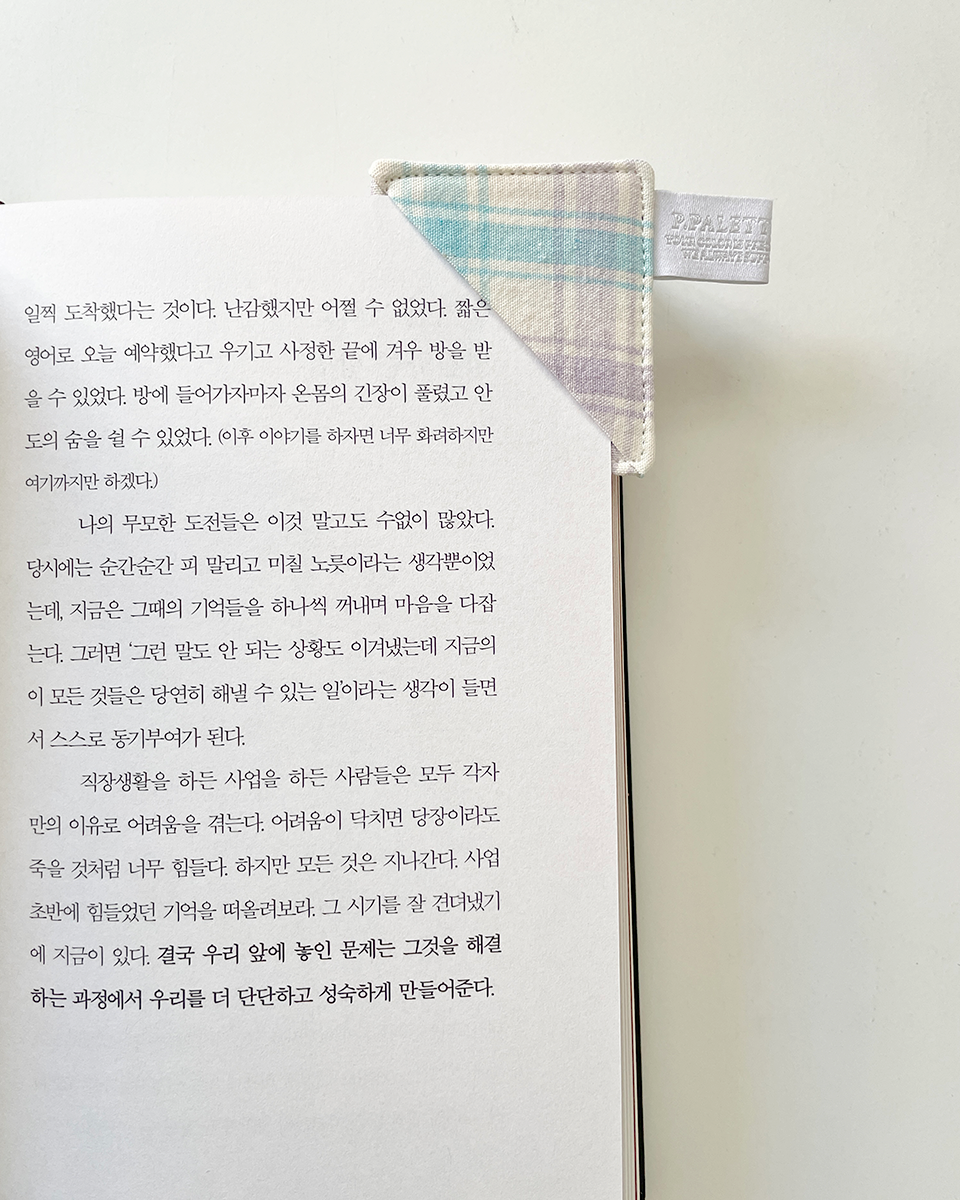 일찍 도착했다는 것이다. 난감했지만 어쩔 수 없었다. 짧은
영어로 오늘 예약했다고 우기고 사정한 끝에 겨우 방을 받
을 수 있었다. 방에 들어가자마자 온몸의 긴장이 풀렸고 안
도의 숨을 쉴 수 있었다. (이후 이야기를 하자면 너무 화려하지만
여기까지만 하겠다.)
나의 무모한 도전들은 이것 말고도 수없이 많았다.
당시에는 순간순간 피 말리고 미칠 노릇이라는 생각뿐이었
는데, 지금은 그때의 기억들을 하나씩 꺼내며 마음을 다잡
는다. 그러면 ‘그런 말도 안 되는 상황도 이겨냈는데 지금의
이 모든 것들은 당연히 해낼 수 있는 일’이라는 생각이 들면
서 스스로 동기부여가 된다.
직장생활을 하든 사업을 하든 사람들은 모두 각자
만의 이유로 어려움을 겪는다. 어려움이 닥치면 당장이라도
죽을 것처럼 너무 힘들다. 하지만 모든 것은 지나간다. 사업
초반에 힘들었던 기억을 떠올려보라. 그 시기를 잘 견뎌냈기
에 지금이 있다. 결국 우리 앞에 놓인 문제는 그것을 해결
하는 과정에서 우리를 더 단단하고 성숙하게 만들어준다.
P.PALETT
WE ALWAYS